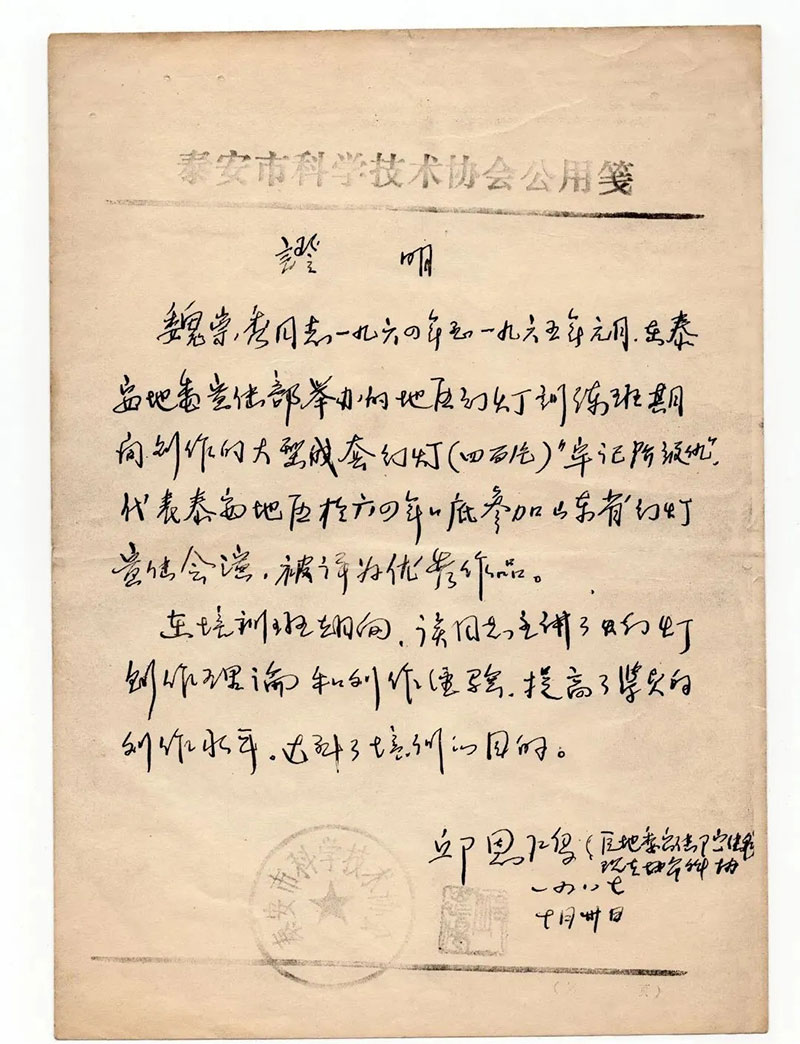 泰安市科学技术协会公用笺
證 明
魏崇秀同志一九六四年至一九六五年元月.在泰
安地委宣传部举办的地区幻灯训练班期
间.创作的大型成套幻灯(四百片)"牢记阶级仇",
代表泰安地区于六四年底参加山东省幻灯
宣传会演,被评为优秀作品。
在培训班期间,该同志主讲了幻灯
创作理论和创作经验.提高了学员的
创作水平。达到了培训的目的。
邱恩(原地委宣传部
现在地市科协
一九八七
十月卅日
泰安市科学技术